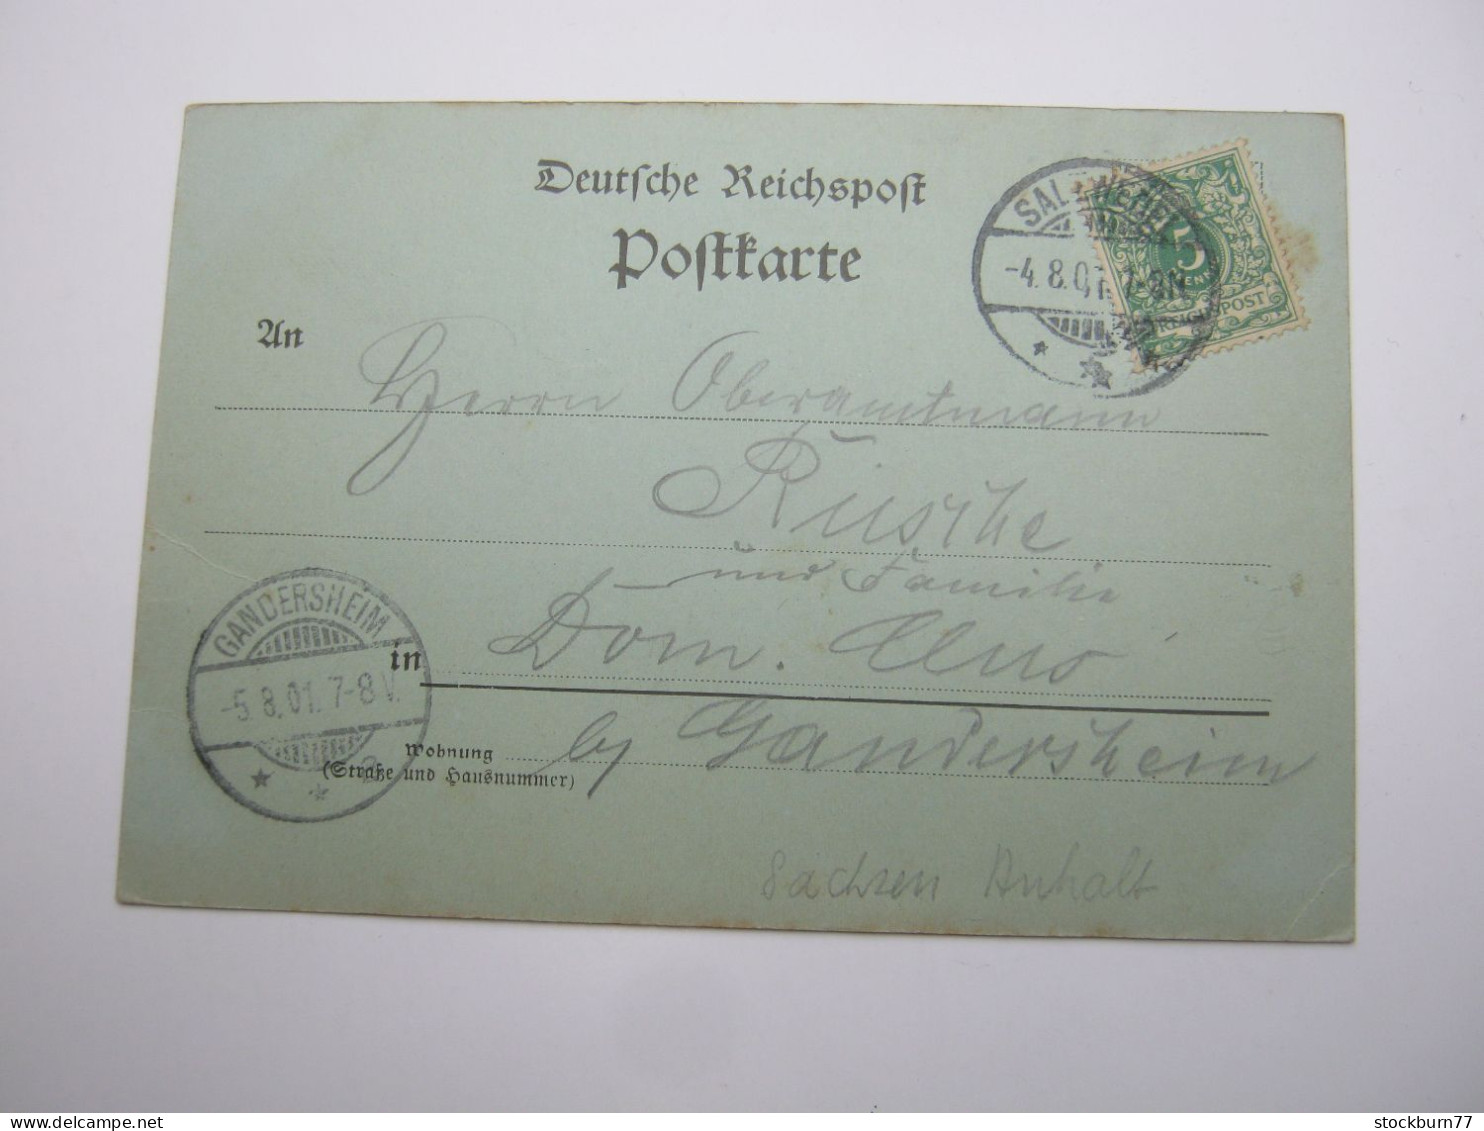 Deutsche Reichspost
Postkarte
SALZWEDEL
-4.8.01. 7-8N
5
REICHSPOST
An
Herrn Oberamtmann
Rüsche
und Familie
in Dom. Clus
by Gandersheim
Wohnung
(Straße und Hausnummer)
GANDERSHEIM
-5.8.01. 7-8V.
a
Sachsen Anhalt
stockburn77